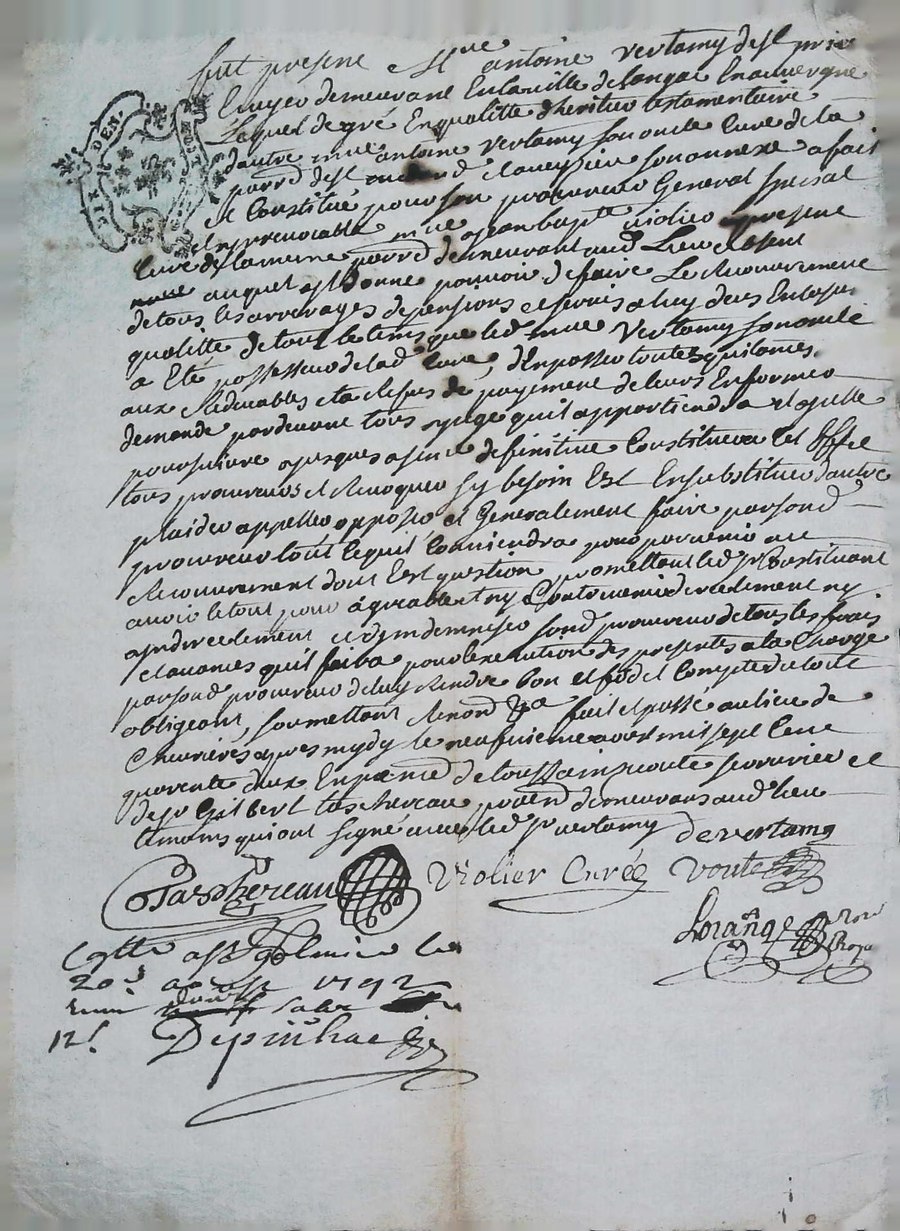 fut presene Mre antoine vertamy de st priv
Ecuyer demeurant En la ville de langac En auvergne
Lequel de gré En qualitte d'heritier testamentaire
d'autre mre antoine vertamy son oncle Curé de la
parr de st et son annexe a fait
et Constitué pour son procureur General special
et irrevocable mre jean bapte violier presene
Curé de la meme parr demeurant aud Lieu absent
auquel a st donne pouvoir de faire Le Recouvrement
de tous les arrerages de pensions et servis a luy deus En laditte
qualitte de tout le tems que led mre vertamy son oncle
a Eté possesseur de lad Cure, d'En passer toutes quitances
aux Redevables et a Refus de payement de leurs En former
demande pardevant tous juges qu'il appartiendra et
poursuivre jusques a sence definitive Constituer a cet Effet
tous procureurs et Revoquer sy besoin Est En substituer d'autre
plaider appeller opposer et Generalement faire par sond
procureur tout Ce qu'il Conviendra pour parvenir au
Recouvrement dont Est question promettant led sr Constituant
avoir le tout pour agreable et ny Contrevenir directement ny
indirectement et d'indemniser sond procureur de tous les frais
et avances qu'il faira pour l'execution des presentes a la Charge
par sond procureur de luy Rendre bon et fidel Compte de tout
obligeant, soumettant Renond fait et passé au lieu de
Chevrières apres mydy le neufvieme aout mil sept Cent
quarente deux En presence de toussaint voute serrurier et
de sr Gilbert taschereau praticien demeurans aud lieu
temoins qui ont signé avec led sr vertamy de vertamy
Taschereau Violier Curé Voute
Lorange Nore Roya
Colle a st golmier le
20e aoust 1742
Reçu douze sols
12 s
Depinhac